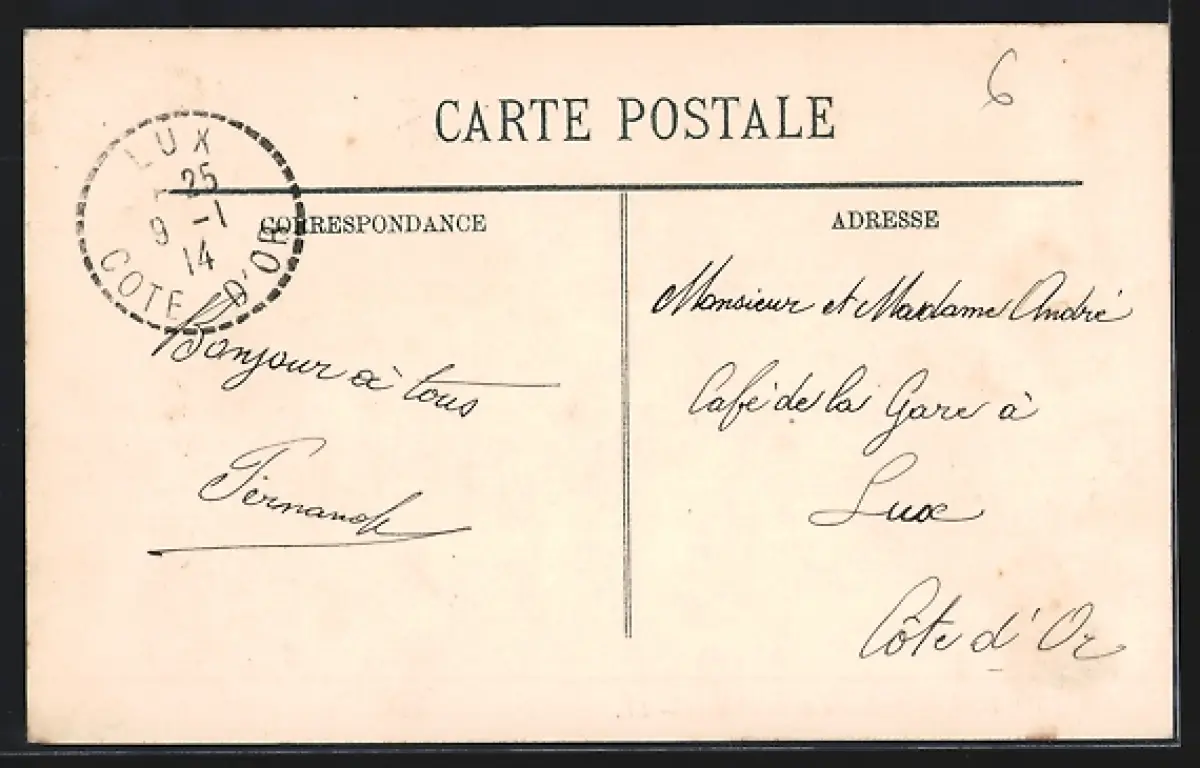 6
CARTE POSTALE
LUX
7 25
9 -1
14
COTE D'OR
CORRESPONDANCE
Bonjour à tous
Fernande
ADRESSE
Monsieur et Madame André
Café de la Gare à
Lux
Côte d'Or